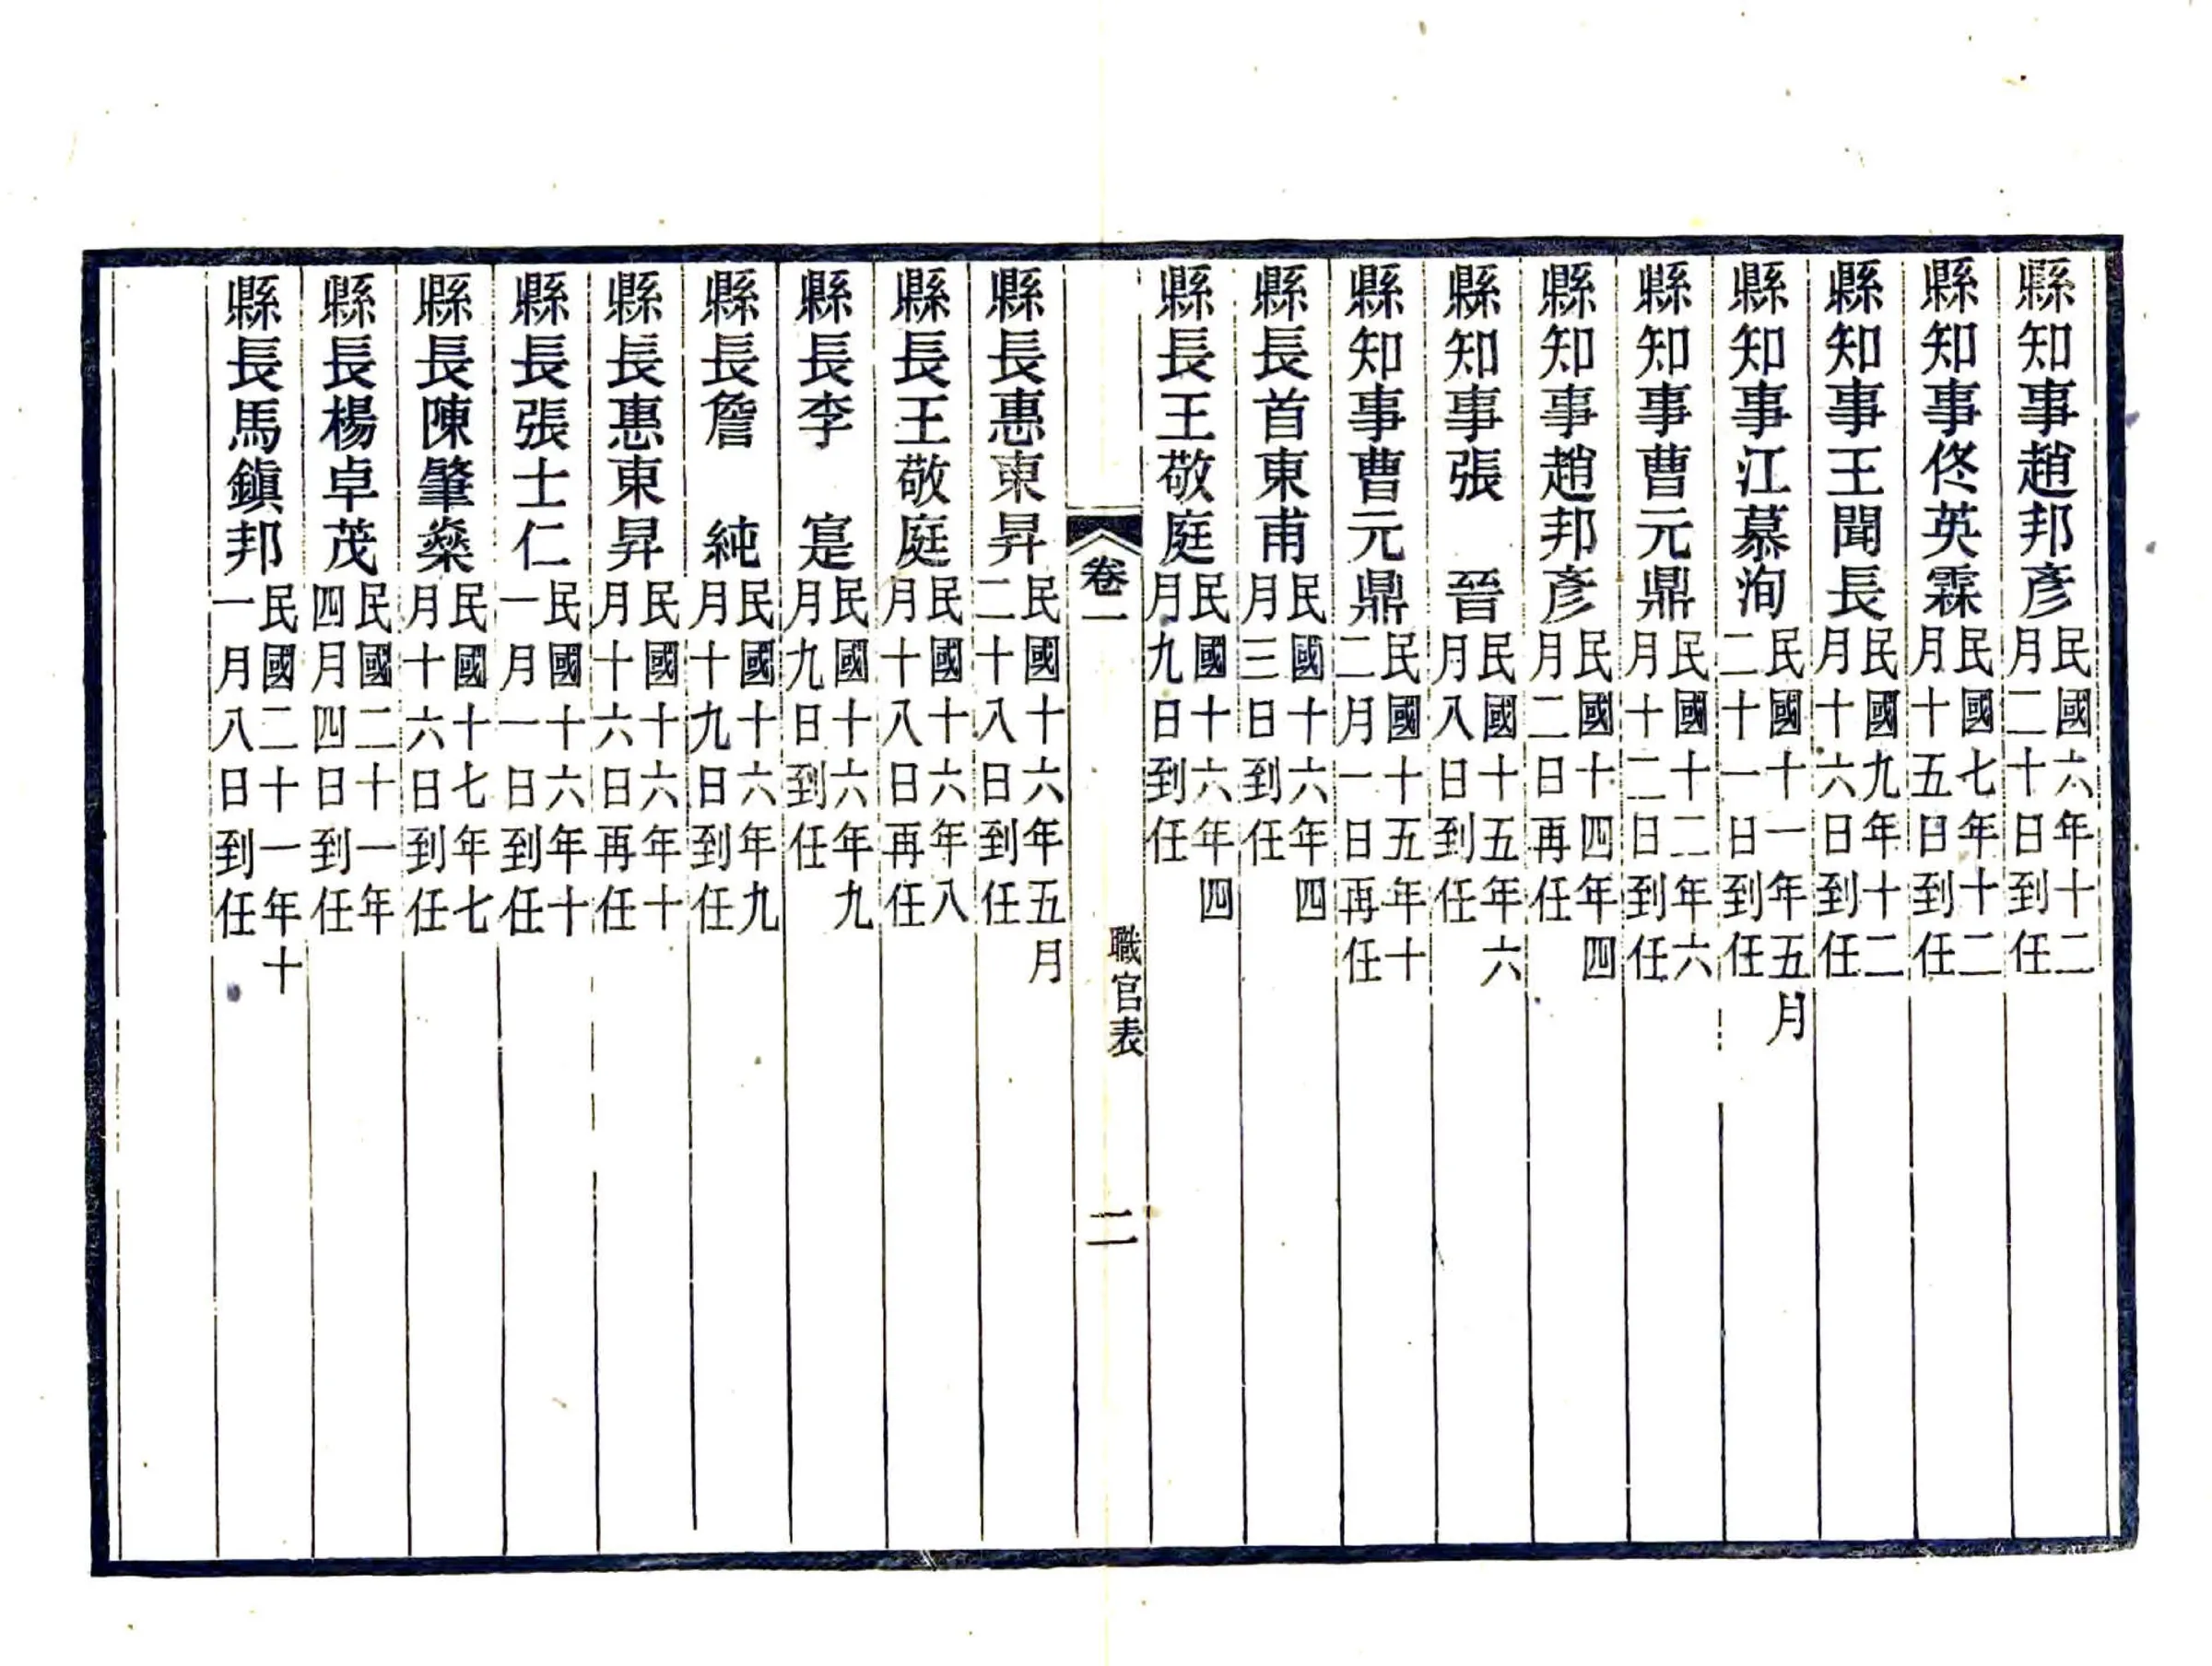 縣知事趙邦彥民國六年十二月二十日到任
縣知事佟英霖民國七年十二月十五日到任
縣知事王聞長民國九年十二月十六日到任
縣知事江慕洵民國十一年五月二十一日到任
縣知事曹元鼎民國十二年六月十二日到任
縣知事趙邦彥民國十四年四月二日再任
縣知事張 晉民國十五年六月八日到任
縣知事曹元鼎民國十五年十二月一日再任
縣長首東甫民國十六年四月三日到任
縣長王敬庭民國十六年四月九日到任
卷一
職官表
二
縣長惠東昇民國十六年五月二十八日到任
縣長王敬庭民國十六年八月十八日再任
縣長李 寔民國十六年九月九日到任
縣長詹 純民國十六年九月十九日到任
縣長惠東昇民國十六年十月十六日再任
縣長張士仁民國十六年十一月一日到任
縣長陳肇燊民國十七年七月十六日到任
縣長楊卓茂民國二十一年四月四日到任
縣長馬鎭邦民國二十一年十一月八日到任